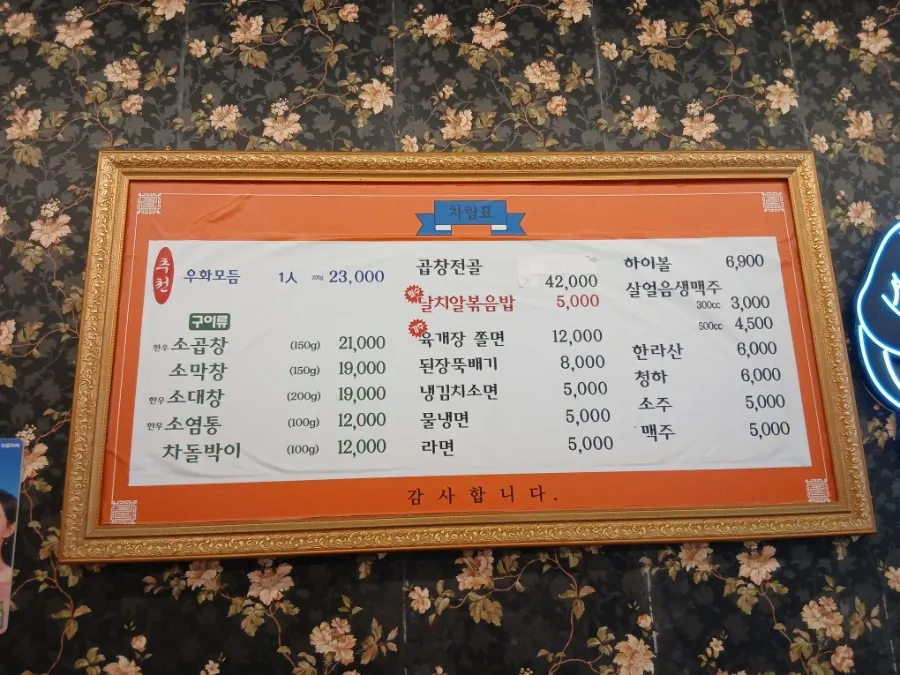 차림표
추천 우화모듬 1人 200g 23,000
구이류
한우 소곱창 (150g) 21,000
소막창 (150g) 19,000
한우 소대창 (200g) 19,000
한우 소염통 (100g) 12,000
차돌박이 (100g) 12,000
곱창전골 42,000
날치알볶음밥 5,000
육개장 쫄면 12,000
된장뚝배기 8,000
냉김치소면 5,000
물냉면 5,000
라면 5,000
하이볼 6,900
살얼음생맥주
300cc 3,000
500cc 4,500
한라산 6,000
청하 6,000
소주 5,000
맥주 5,000
감사합니다.